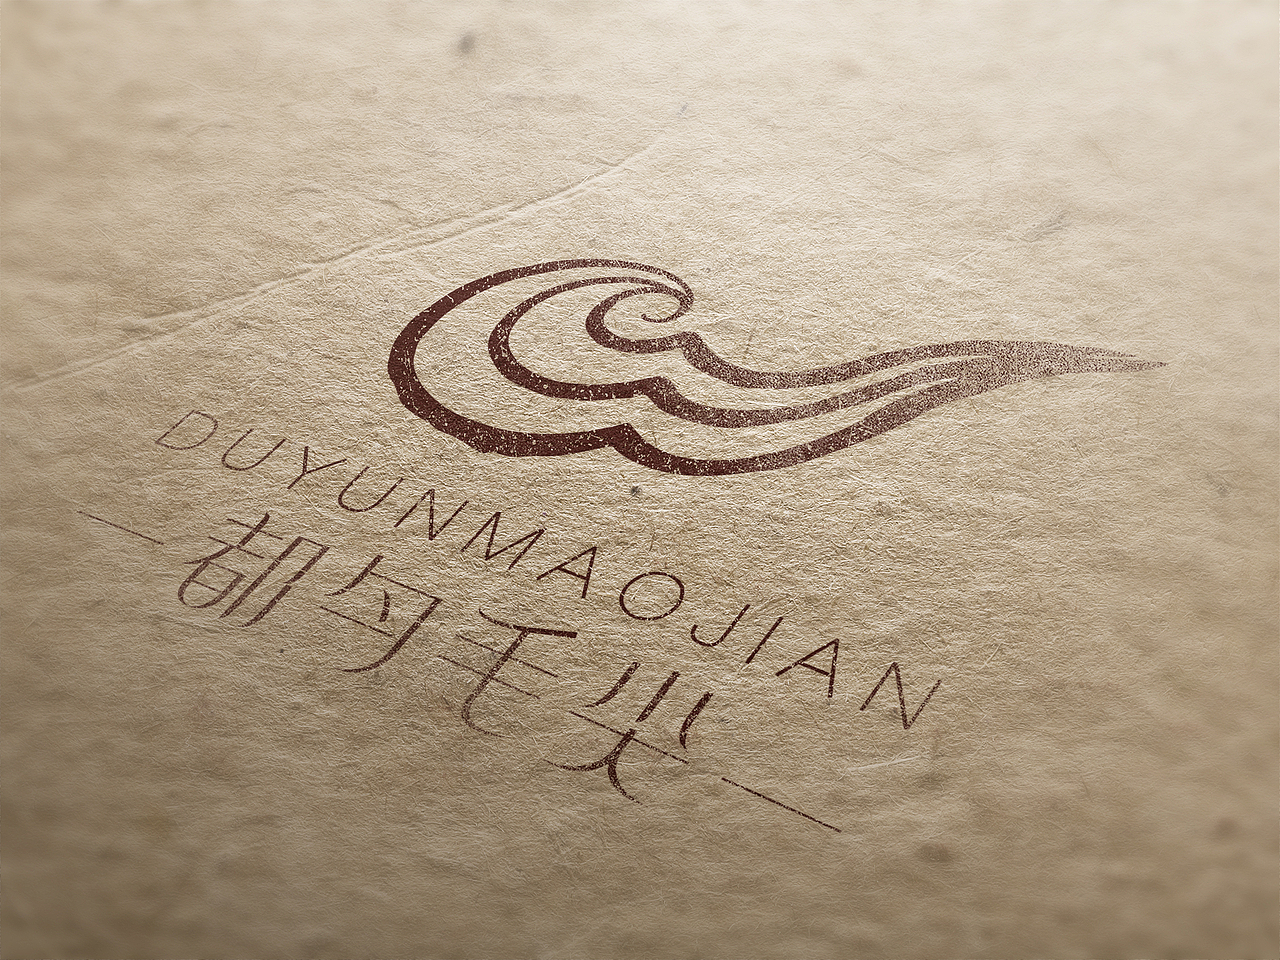 DUYUNMAOJIAN
都匀毛尖